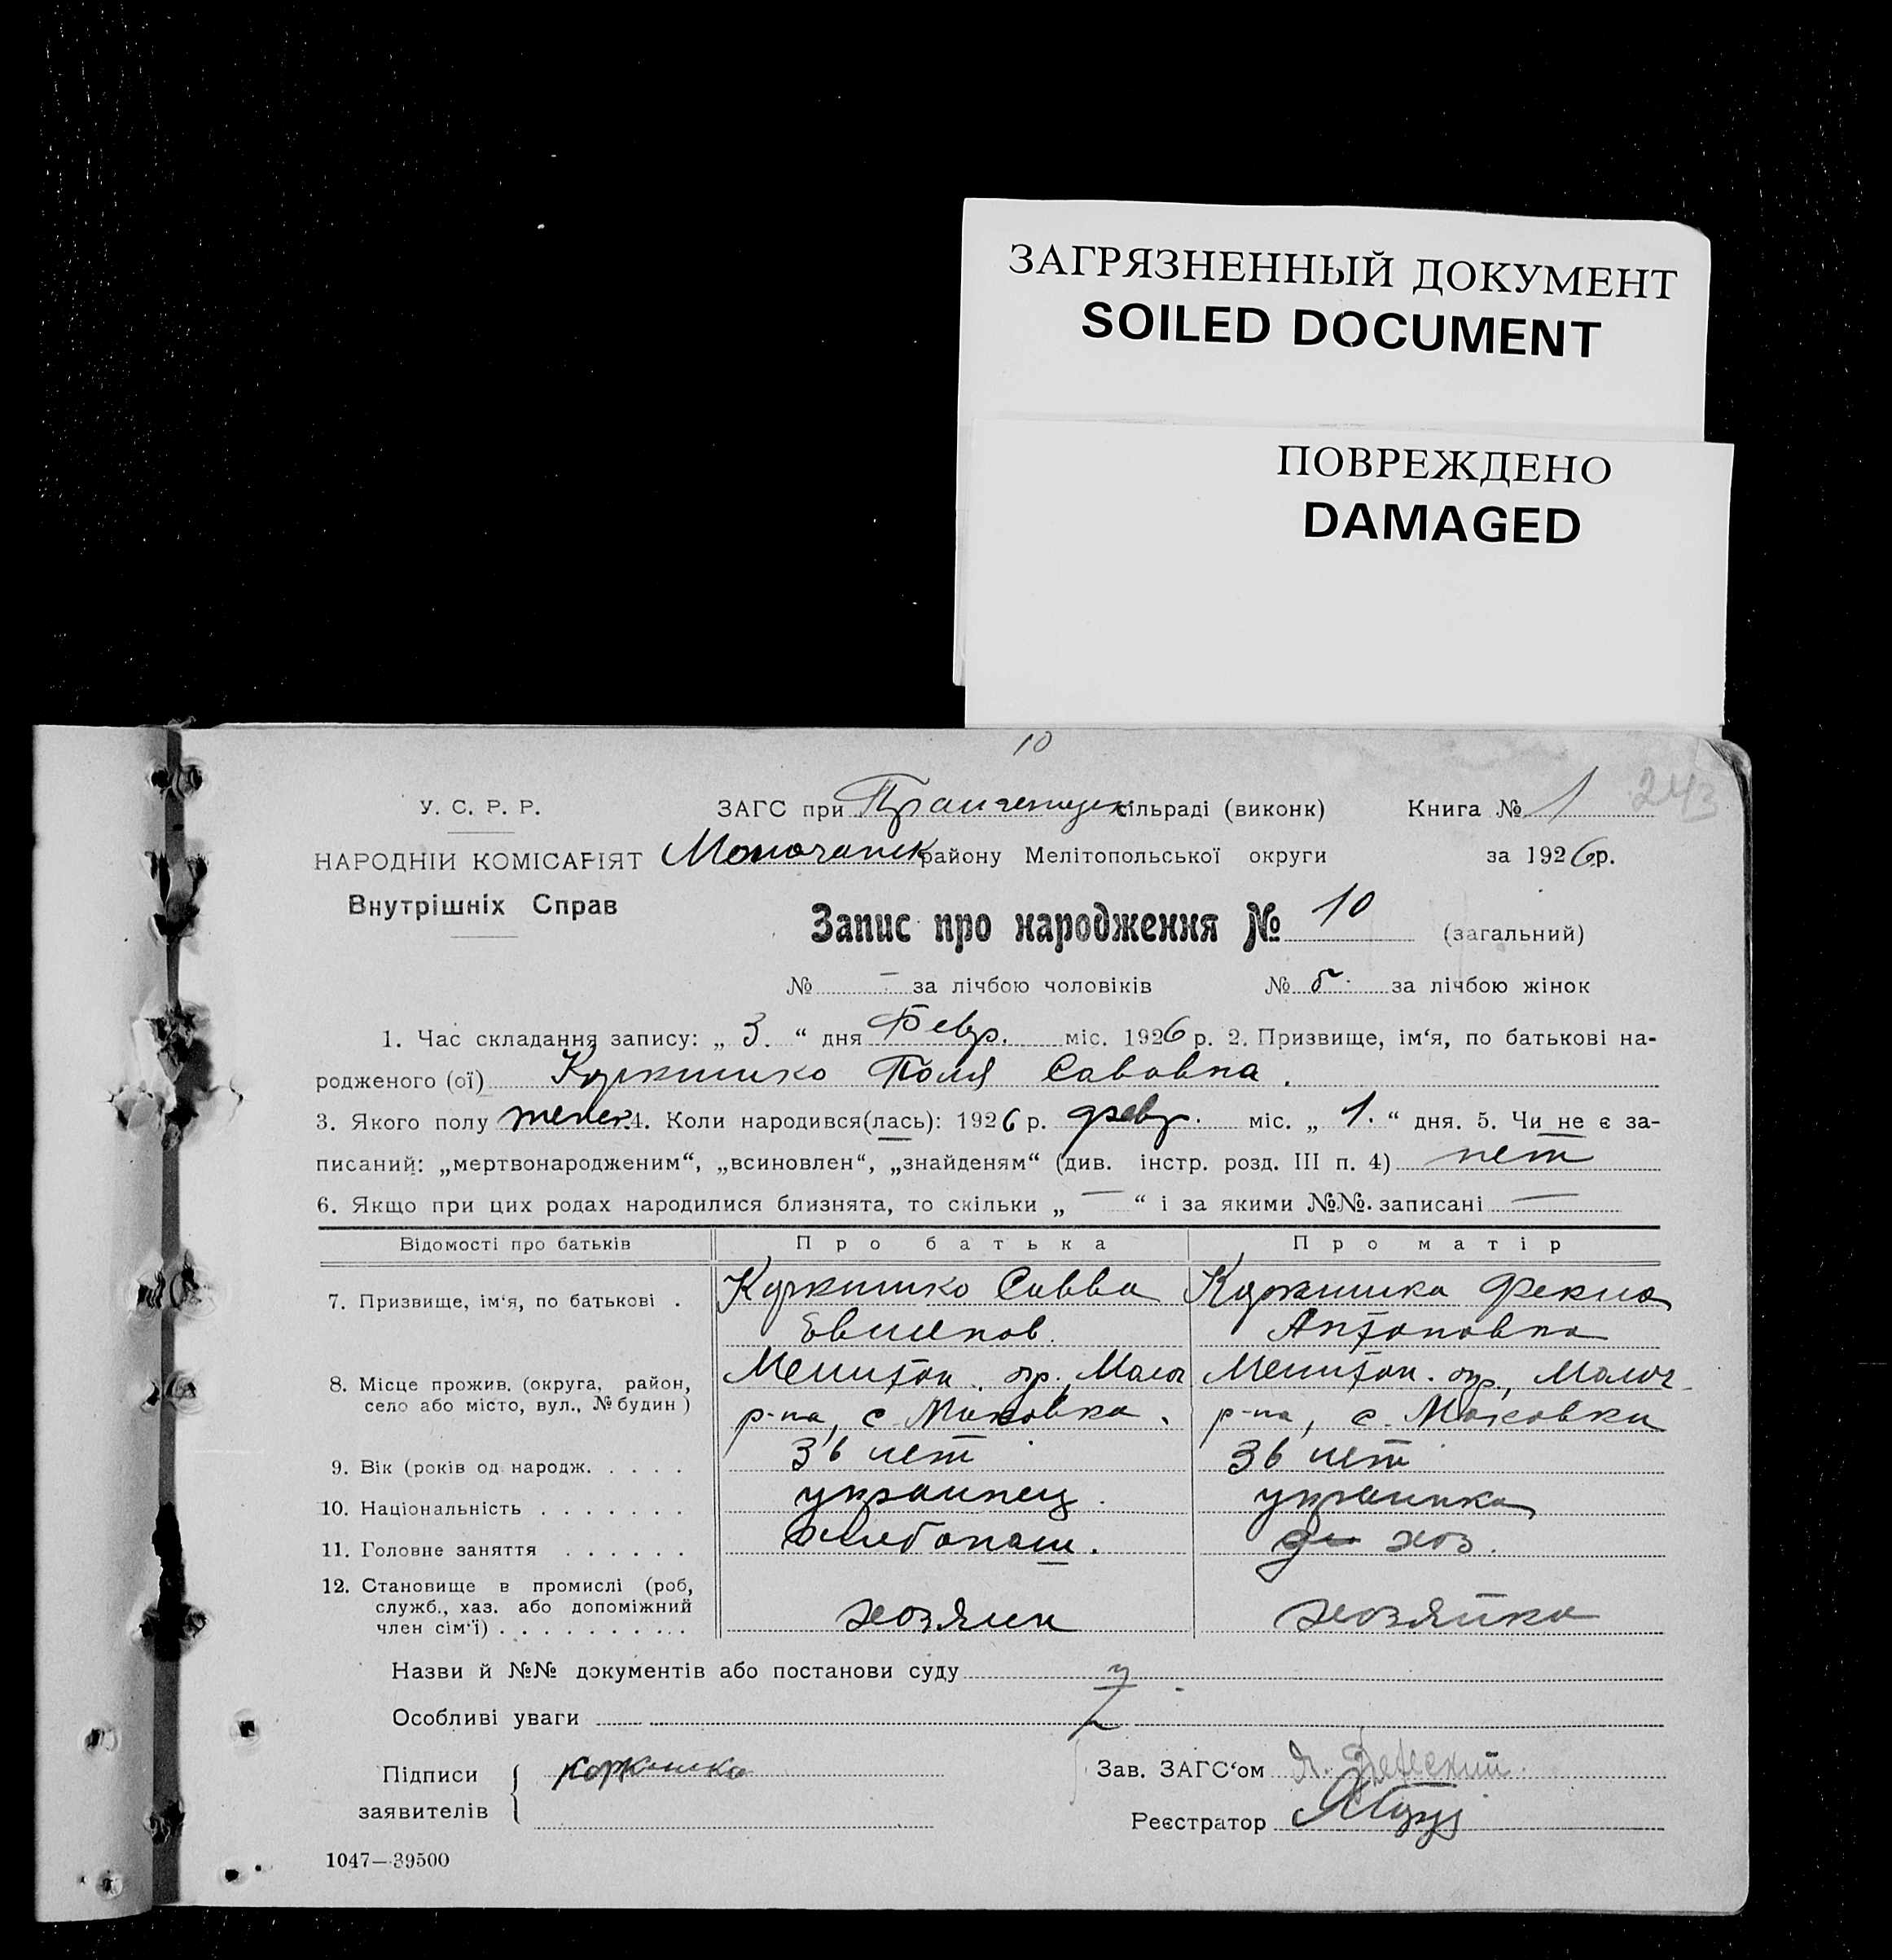 ЗАГРЯЗНЕННЫЙ ДОКУМЕНТ
SOILED DOCUMENT
ПОВРЕЖДЕНО
DAMAGED
10
243
У. С. Р. Р.
ЗАГС при сільраді (виконк) Книга № 1
НАРОДНІЙ КОМІСАРІЯТ
району Мелітопольської округи за 1926 р.
Внутрішніх Справ
Запис про народження № 10 (загальний)
№ — за лічбою чоловіків № 5. за лічбою жінок
1. Час складання запису: „ 3. “ дня Февр. міс. 1926 р. 2. Призвище, ім‘я, по батькові на-
родженого (ої) Поля Саввовна.
3. Якого полу женск. 4. Коли народився(лась): 1926 р. февр. міс. „ 1. “ дня. 5. Чи не є за-
писаний: „мертвонародженим“, „всиновлен“, „знайденям“ (див. інстр. розд. III п. 4) нет
6. Якщо при цих родах народилися близнята, то скільки „ — “ і за якими №№. записані —
Відомості про батьків Про батька Про матір
7. Призвище, ім‘я, по батькові . Савва Фекла
Антоновна
8. Місце прожив. (округа, район, Мелитоп. окр., Молоч Мелитоп. окр., Молоч
село або місто, вул., № будин) р-на, с. р-на, с.
9. Вік (років од народж. . . . . 36 лет 36 лет
10. Національність . . . . . . . украинец. украинка
11. Головне заняття . . . . . . хлебопаш. хоз.
12. Становище в промислі (роб,
служб., хаз. або допоміжний хозяин хозяйка
член сім‘ї) . . . . . . . . . .
Назви й №№ документів або постанови суду
Особливі уваги
Підписи
заявителів
Зав. ЗАГС‘ом
Реєстратор
1047—39500